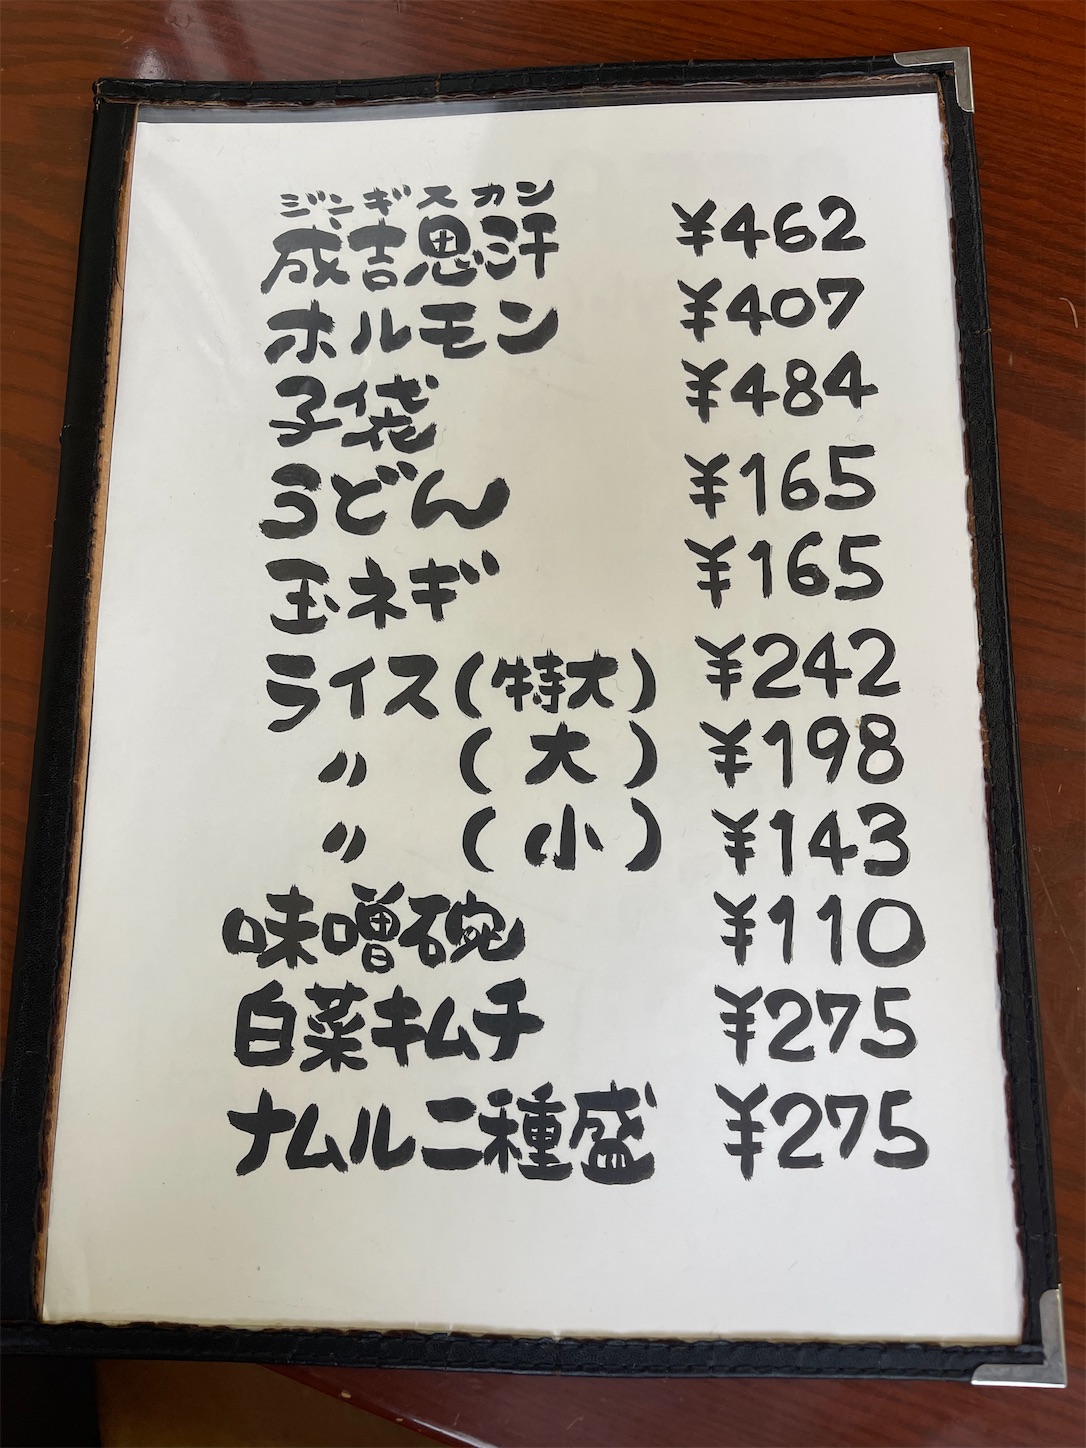 ジンギスカン
成吉思汗 ¥462
ホルモン ¥407
子袋 ¥484
うどん ¥165
玉ネギ ¥165
ライス(特大) ¥242
〃 (大) ¥198
〃 (小) ¥143
味噌碗 ¥110
白菜キムチ ¥275
ナムル二種盛 ¥275